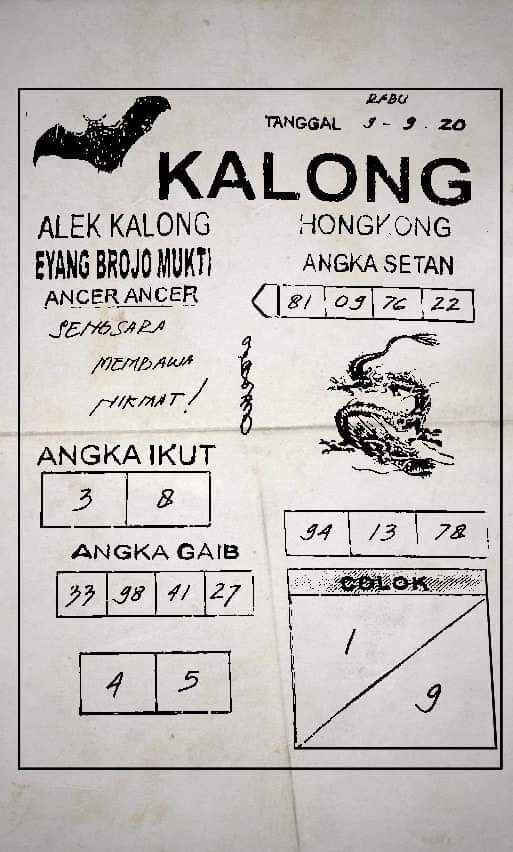 RABU
TANGGAL 9 - 9 . 20
KALONG
ALEK KALONG
HONGKONG
EYANG BROJO MUKTI
ANGKA SETAN
ANCER ANCER
81 09 76 22
SENGSARA
MEMBAWA
HIKMAT!
ANGKA IKUT
3 8
94 13 78
ANGKA GAIB
33 98 41 27
COLOK
1
9
4 5